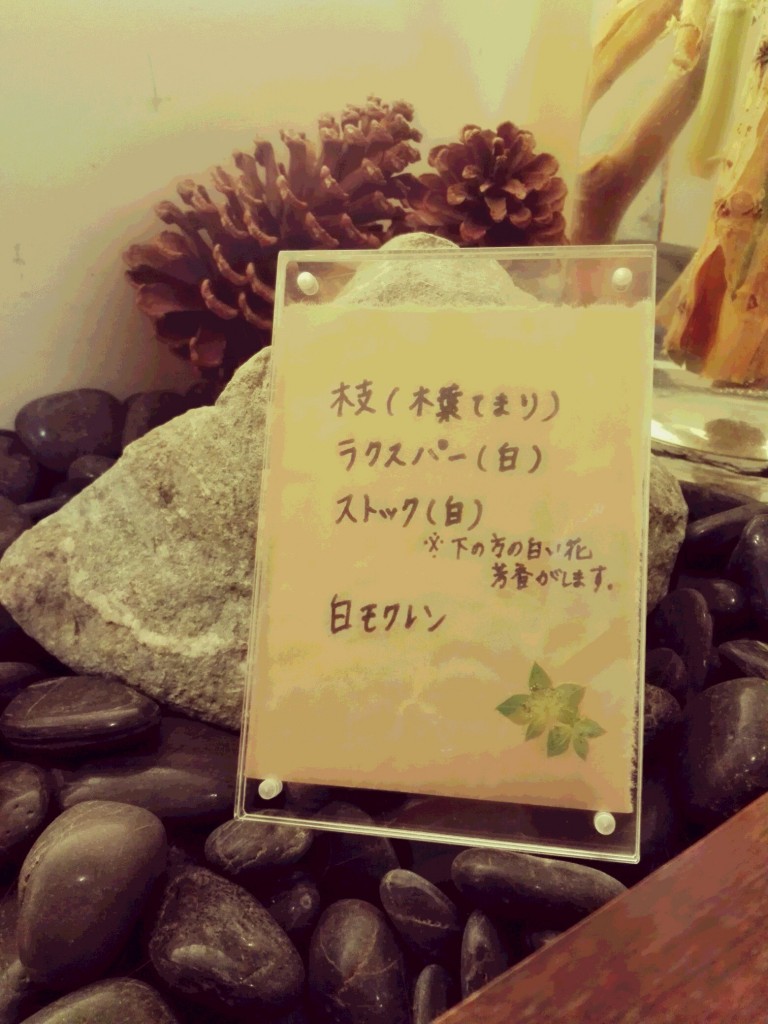 木支(木葉てまり)
ラクスパー(白)
ストック(白)
※下の方の白い花
芳香がします。
白モクレン